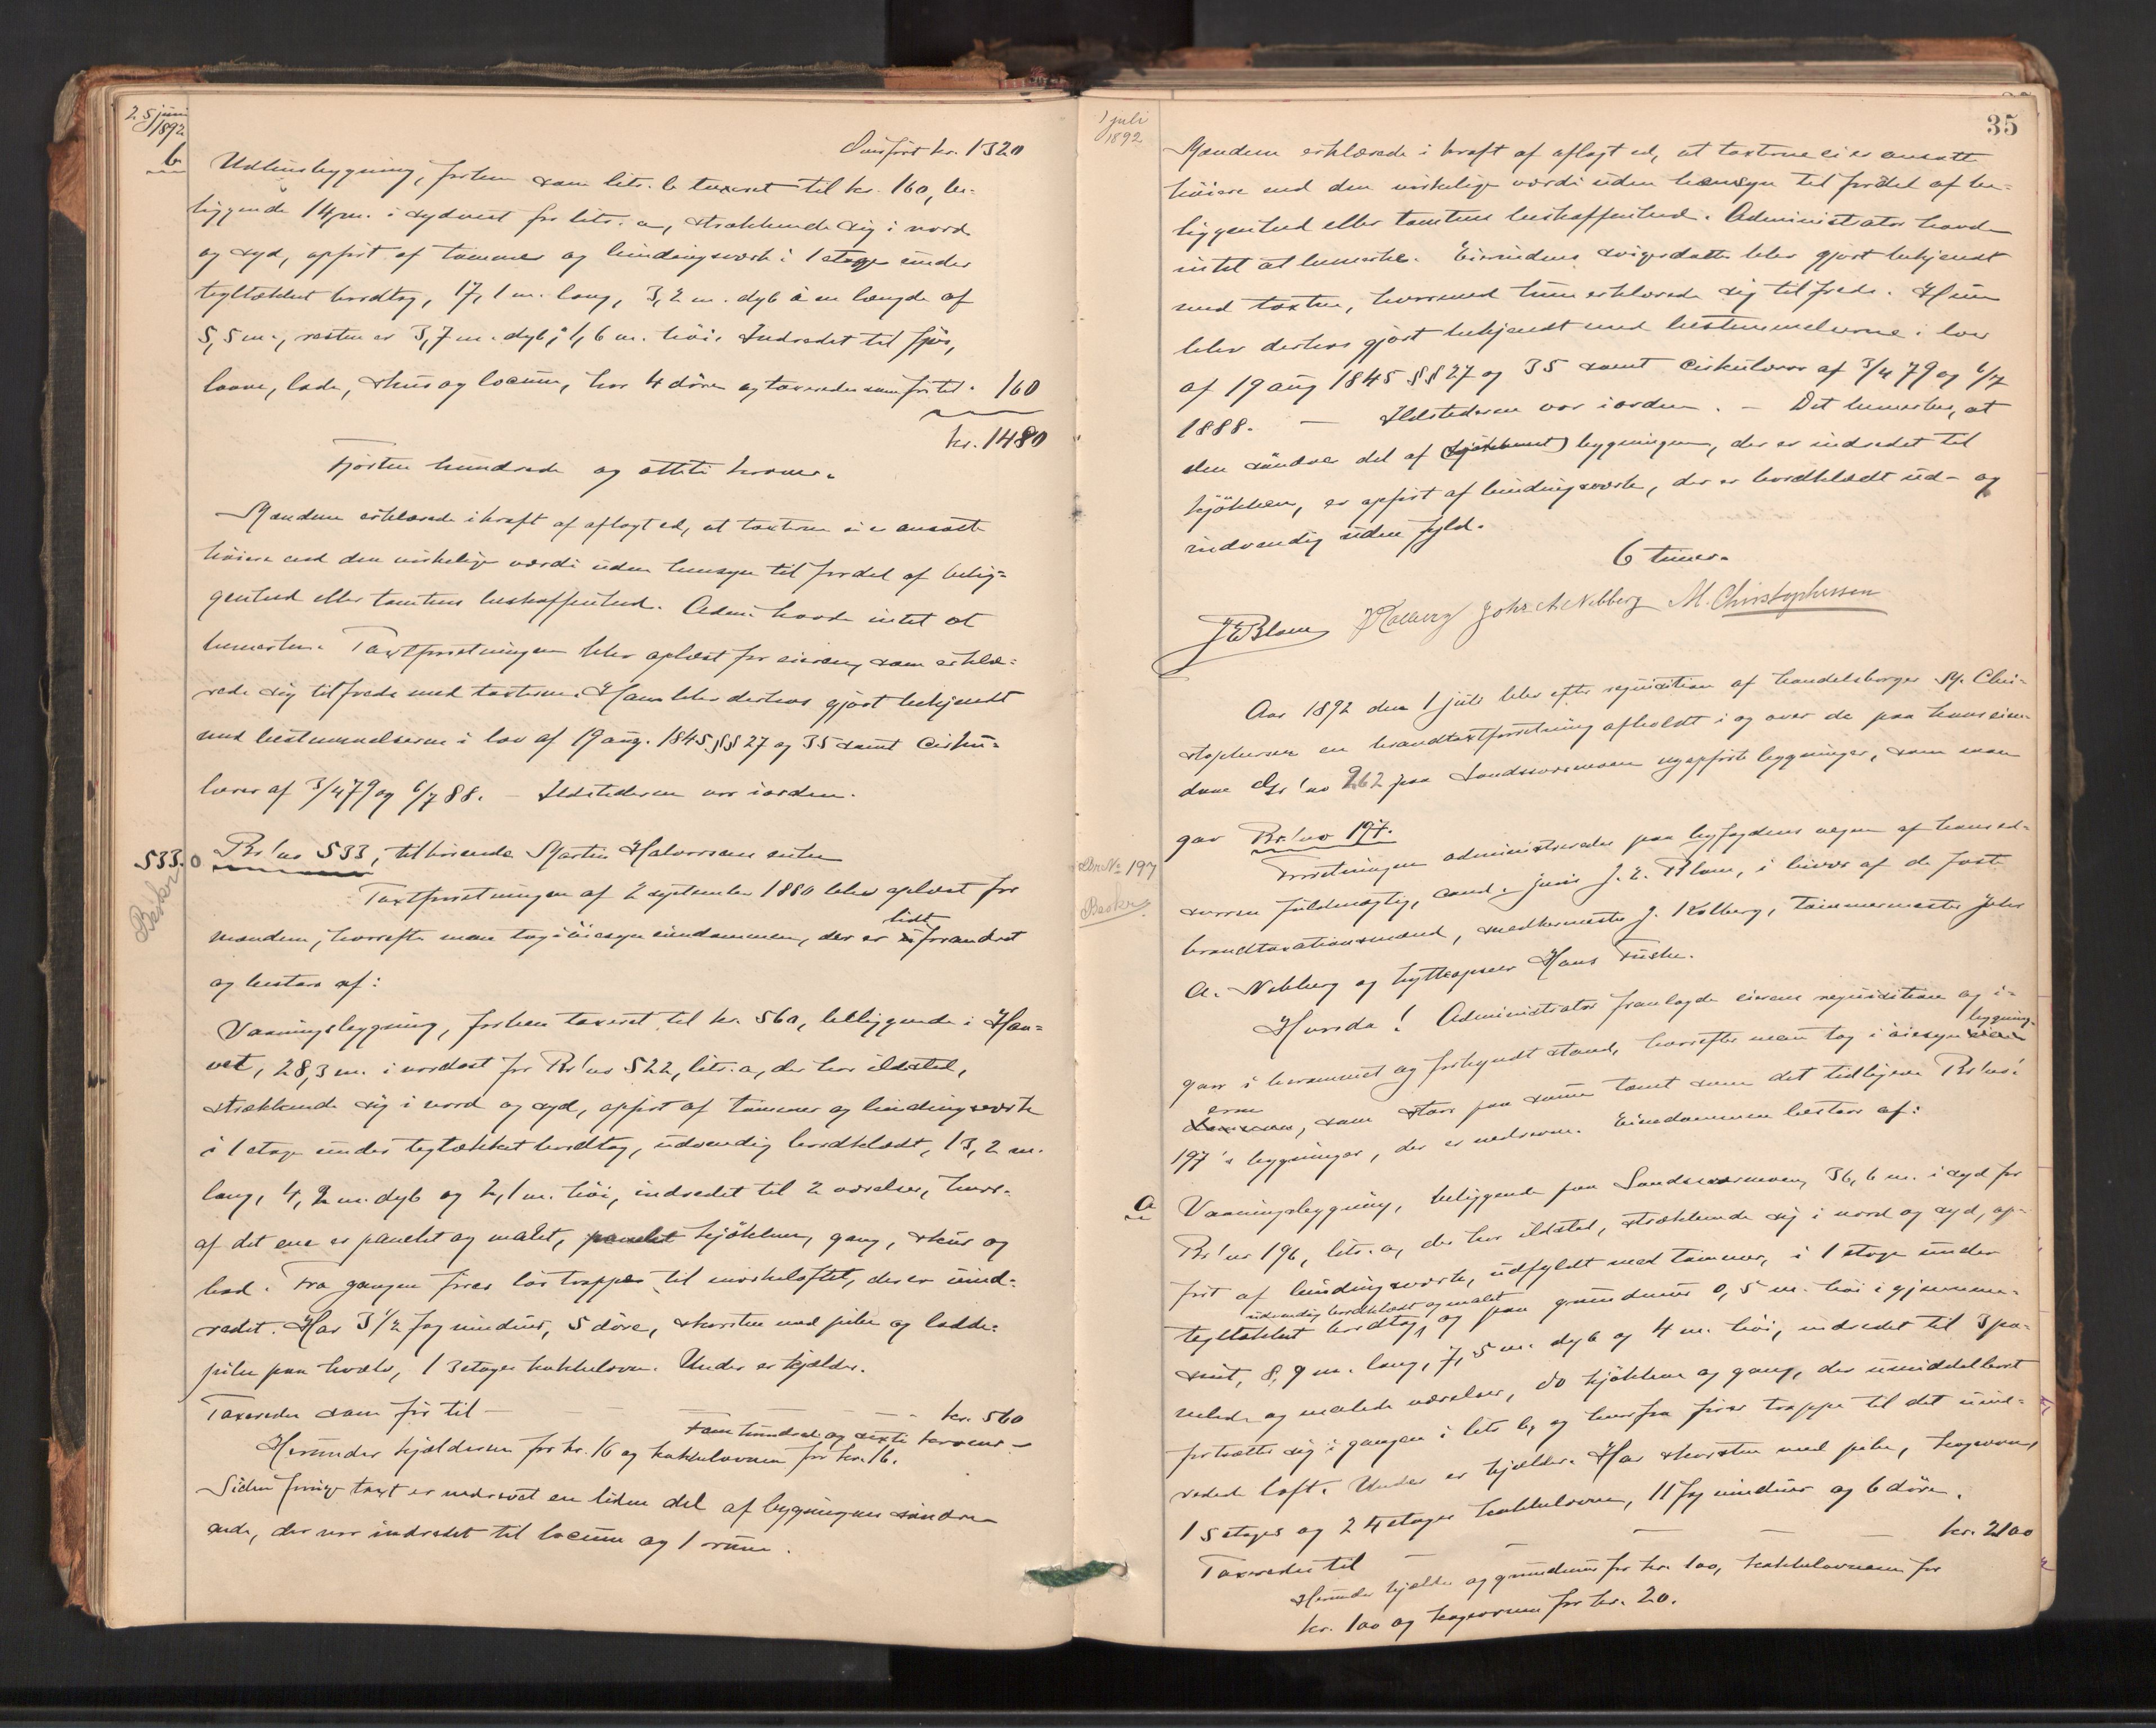 25 juni
1892
Overført kr. 1320
b
Udhusbygning, forhen som litr. b taxeret til kr. 160, be-
liggende 14 m. i sydvest for litr. a, strækkende sig i nord
og syd, opført af tømmer og bindingsværk i 1 etage under
tegltækket bordtag, 17,1 m. lang, 3,2 m. dyb i en længde af
5,5 m., resten er 3,7 m. dyb, 1,6 m. høi. Indredet til fjøs,
laave, lade, skur og locum, har 4 døre og taxeredes som før til. 160
kr. 1480
Fjorten hundrede og otteti kroner.
Mændene erklærede i kraft af aflagt ed, at taxterne ei er ansatte
høiere end den virkelige værdi uden hensyn til fordel af belig-
genhed eller tomtens beskaffenhed. Adm. havde intet at
bemærke. Taxtforretningen blev oplæst for eieren, som erklæ-
rede sig tilfreds med taxterne. Han blev derhos gjort bekjendt
med bestemmelserne i lov af 19 aug. 1845 §§ 27 og 35 samt cirku-
lærer af 3/4 79 og 6/7 88. – Ildstederne var i orden.
533. o Br.'no 533, tilhørende Martin Halvorsens enke
Besker
Taxtforretningen af 2 september 1880 blev oplæst for
mændene, hvorefter man tog i øiesyn eiendommen, der er lidt forandret
og bestaar af:
Vaaningsbygning, forhen taxeret til kr. 560, beliggende i Hau-
vet, 28,3 m. i nordost for Br.'no 522, litr. a, der har ildsted,
strækkende sig i nord og syd, opført af tømmer og bindingsværk
i 1 etage under tegltækket bordtag, udvendig bordklædt, 13,2 m.
lang, 4,2 m. dyb og 2,1 m. høi, indredet til 2 værelser, hvor-
af det ene er panelet og malet, panelet kjøkken, gang, skur og
bod. Fra gangen fører løs trappe til mørkeloftet, der er uind-
redet. Har 3½ fag vinduer, 5 døre, skorsten med pibe og ladde-
pibe paa hvælv, 1 3etages kakkelovn. Under er kjælder.
Taxeredes som før til – – – – kr. 560
Fem hundrede og sexti kroner –
Herunder kjælderen for kr. 16 og kakkelovnen for kr. 16.
Siden forrige taxt er nedrevet en liden del af bygningens søndre
ende, der var indredet til locum og 1 rum.
1 juli
1892
35
Mændene erklærede i kraft af aflagt ed, at taxterne ei er ansatte
høiere end den virkelige værdi uden hensyn til fordel af be-
liggenhed eller tomtens beskaffenhed. Administrator havde
intet at bemærke. Eierindens svigerdatter blev gjort bekjendt
med taxten, hvormed hun erklærede sig tilfreds. Hun
blev derhos gjort bekjendt med bestemmelserne i lov
af 19 aug 1845 §§ 27 og 35 samt cirkulærer af 3/4 79 og 6/7
1888. – Ildstederne var i orden. – Det bemærkes, at
den søndre del af bygningen, der er indredet til
kjøkken, er opført af bindingsværk, der er bordklædt ud- og
indvendig uden fyld.
6 timer.
J E Blom J Kolberg Johs A Nebberg M. Christophersen
Aar 1892 den 1 juli blev efter requisition af handelsborger M. Chri-
stophersen en brandtaxtforretning afholdt i og over de paa hans eien-
dom Gr.'no 262 paa Sandsværmoen nyopførte bygninger, som man
gav Br.'no 197.
Br No 197
Besker
Forretningen administreredes paa byfogdens vegne af hans ed-
svorne fuldmægtig, cand. juris J. E. Blom, i hvær af de faste
brandtaxationsmænd, snedkermester J. Kolberg, tømmermester Johs
A. Nebberg og hytteopseer Hans Fuske.
Hvorda! Administrator fremlagde eierens requisition og i-
gav i berammet og forkyndt stand, hvorefter man tog i øiesyn bygning-
erne, som staar paa samme tomt som det tidligere Br.'no
197's bygninger, der er nedrevne. Eiendommen bestaar af:
a
Vaaningsbygning, beliggende paa Sandsværmoen, 36,6 m. i syd for
Br.'no 196, litr. a, der har ildsted, strækkende sig i nord og syd, op-
ført af bindingsværk, udfyldt med tømmer, i 1 etage under
tegltækket bordtag, udvendig bordklædt og malet og paa grundmur 0,5 m. høi i gjennem-
snit, 8,9 m. lang, 7,5 m. dyb og 4 m. høi, indredet til 3 pa-
nelede og malede værelser, do kjøkken og gang, der umiddelbart
fortsætter sig i gangen i litr b, og hvorfra fører trappe til det uind-
redede loft. Under er kjælder. Har skorsten med pibe, kogeovn,
1 5 etages og 2 4etages kakkelovne, 11 fag vinduer og 6 døre.
Taxeredes til – – – – kr. 2100
Herunder kjælder og grundmur for kr. 100, kakkelovnene for
kr. 100 og kogeovnen for kr. 20.